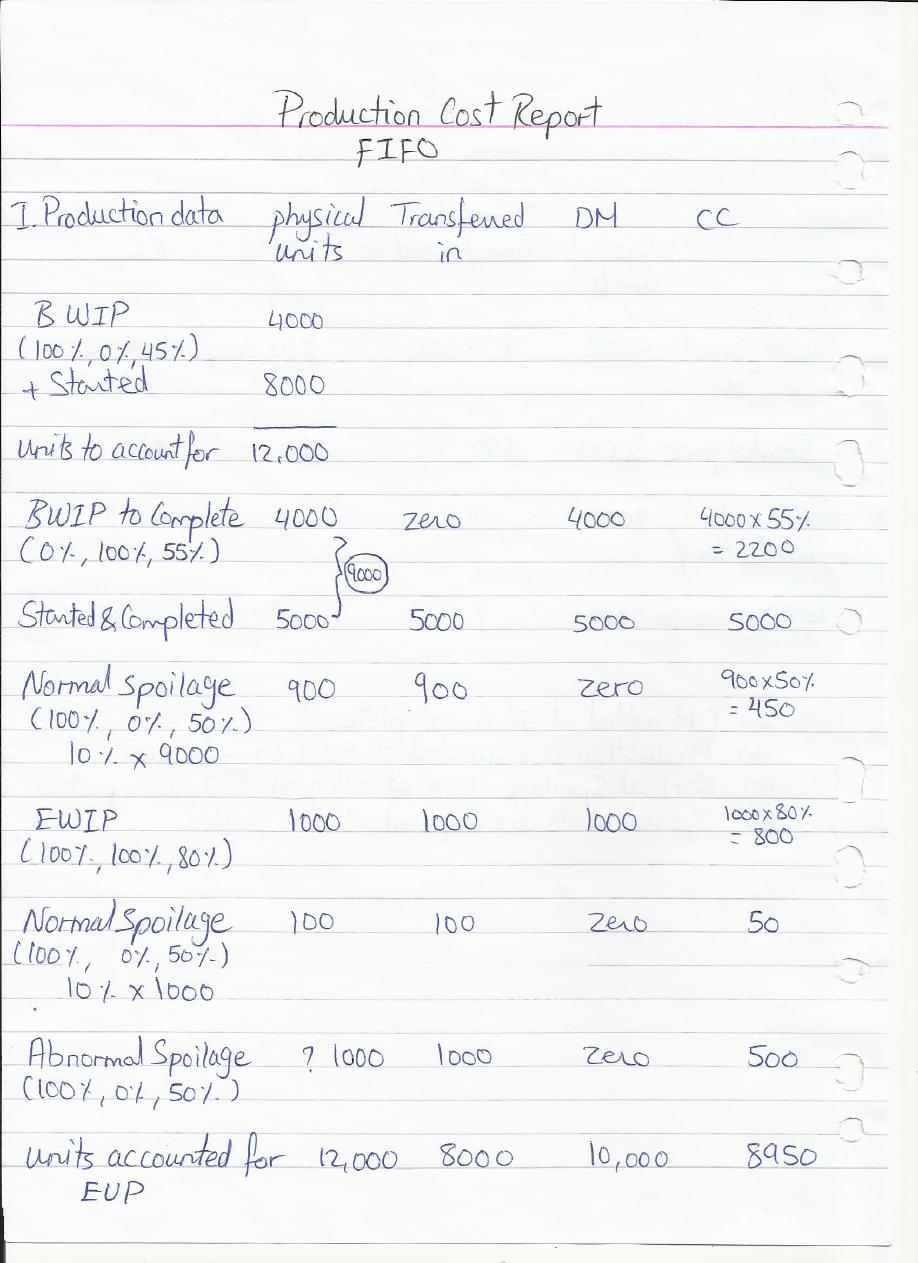 Production Cost Report
FIFO
I. Production data physical Transferred DM CC
units in
B WIP 4000
(100%, 0%, 45%)
+ Started 8000
Units to account for 12,000
BWIP to Complete 4000 zero 4000 4000 x 55%
(0%, 100%, 55%) = 2200
9000
Started & Completed 5000 5000 5000 5000
Normal Spoilage 900 900 zero 900x50%
(100%, 0%, 50%) = 450
10% x 9000
EWIP 1000 1000 1000 1000x80%
(100%, 100%, 80%) = 800
Normal Spoilage 100 100 zero 50
(100%, 0%, 50%)
10% x 1000
Abnormal Spoilage ? 1000 1000 zero 500
(100%, 0%, 50%)
Units accounted for 12,000 8000 10,000 8950
EUP